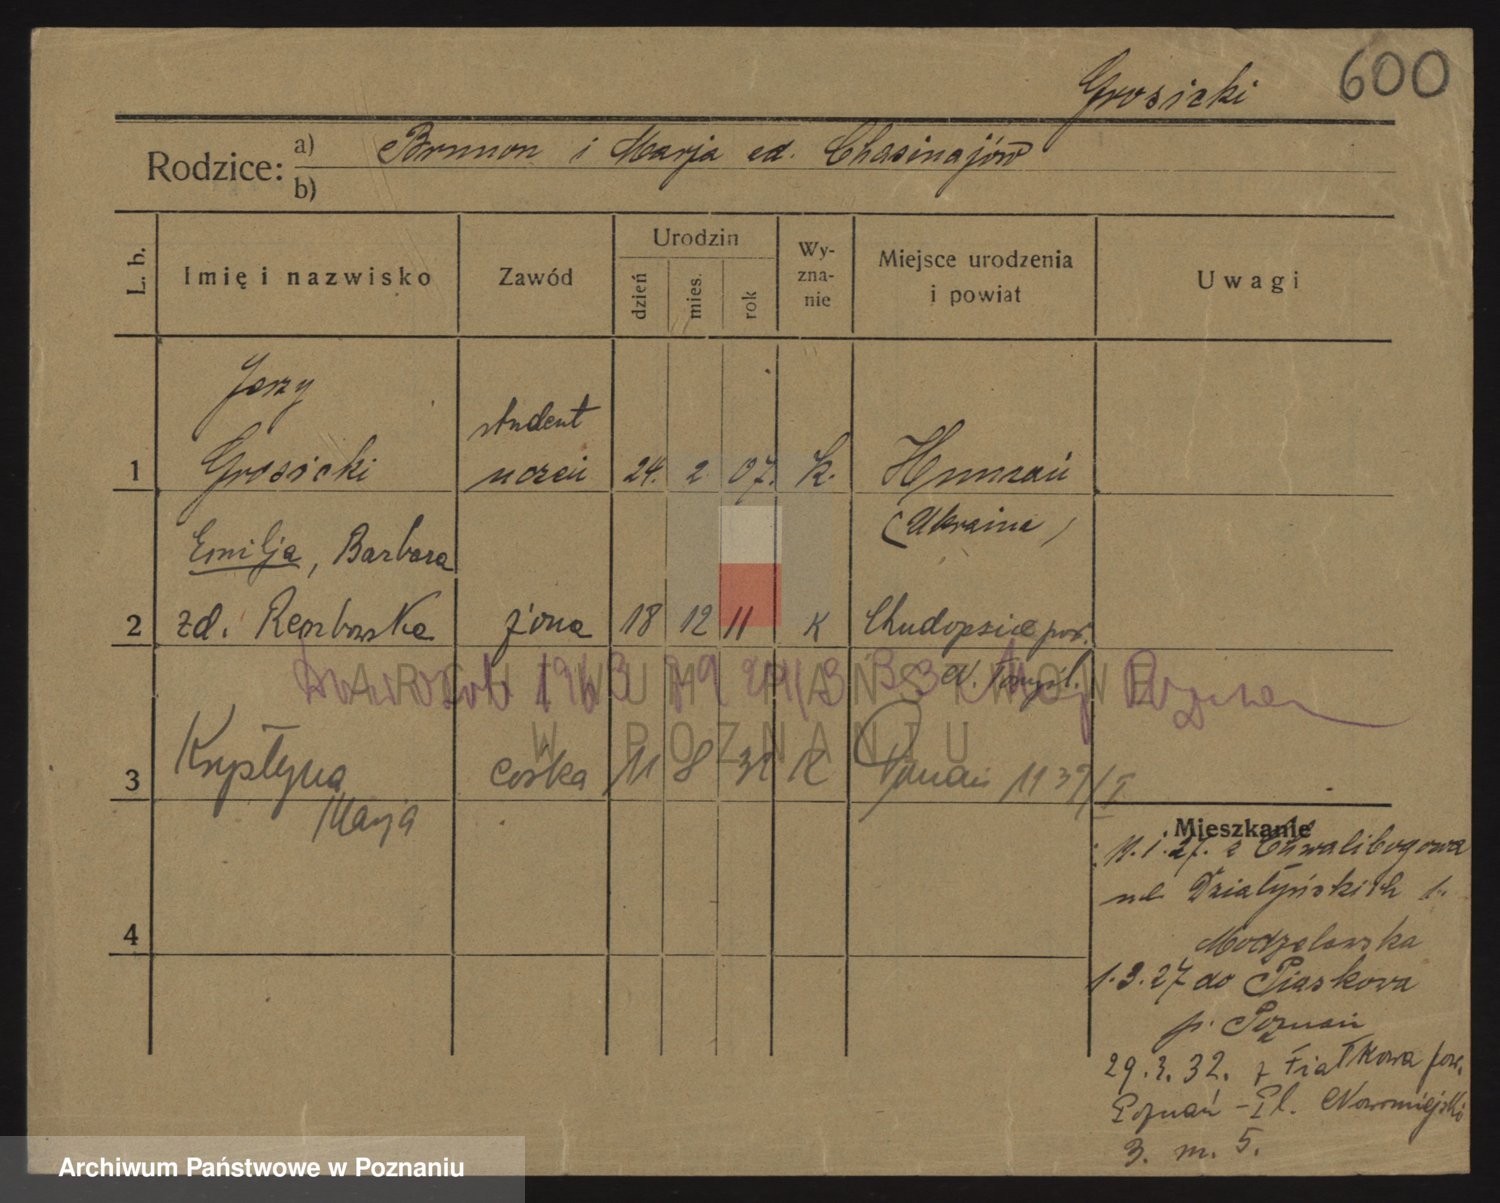 Grosicki 600
Rodzice: a) Brunon i Marja
b)
L. b. Imię i nazwisko Zawód Urodzin dzień mies. rok Wy-zna-nie Miejsce urodzenia i powiat Uwagi
Jerzy student
1 Grosicki uczeń 24. 2. 07. k. Humań
(Ukraina)
Emilja, Barbara
2 zd. żona 18 12 11 K pow.
N. Tomyśl.
ARCHIWUM PAŃSTWOWE
W POZNANIU
3 Krystyna córka 11 8 32 K Poznań 1137/I
Marja
4
Mieszkanie
11.1.27. z Chwalibogowa
ul. Działyńskich 1.
Modzelewska
1.3.27 do Piaskowa
p. Poznań
29.3.32. z Fiałkowa pow.
Poznań - Pl. Nowomiejski
3. m. 5.
Archiwum Państwowe w Poznaniu